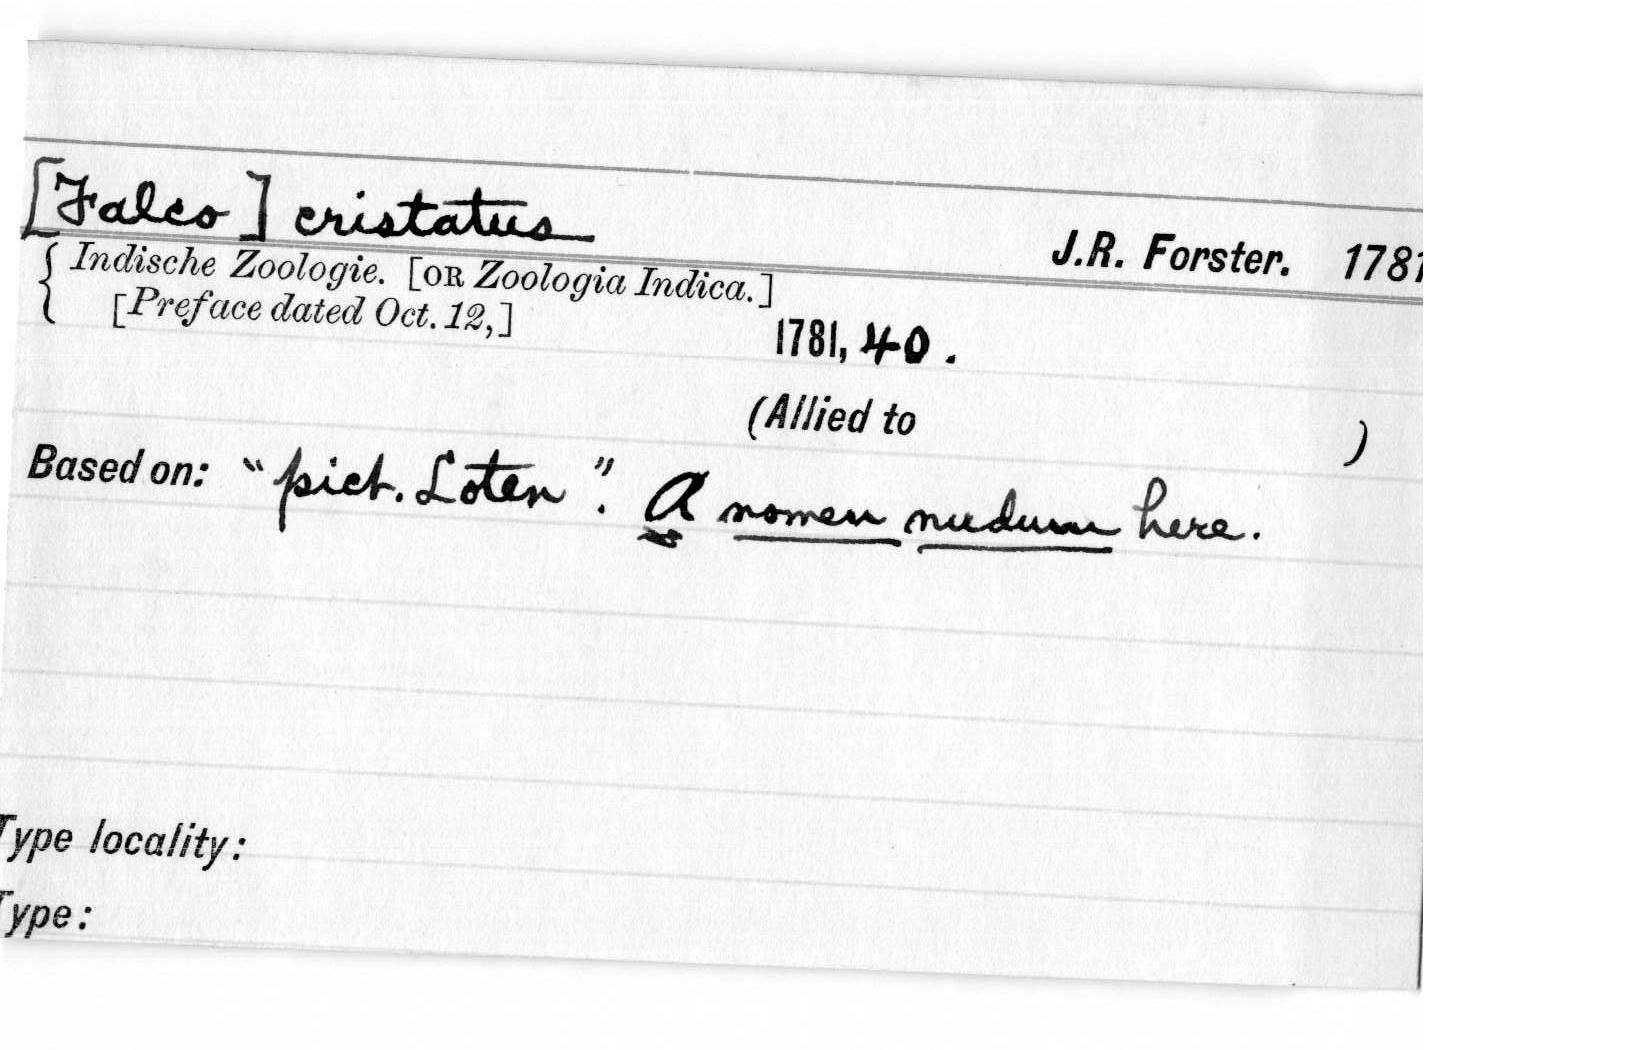 [Falco] cristatus
J.R. Forster. 1781
{ Indische Zoologie. [OR Zoologia Indica.]
[Preface dated Oct. 12,]
1781, 40.
(Allied to )
Based on: "pict. Loten". A nomen nudum here.
Type locality:
Type: